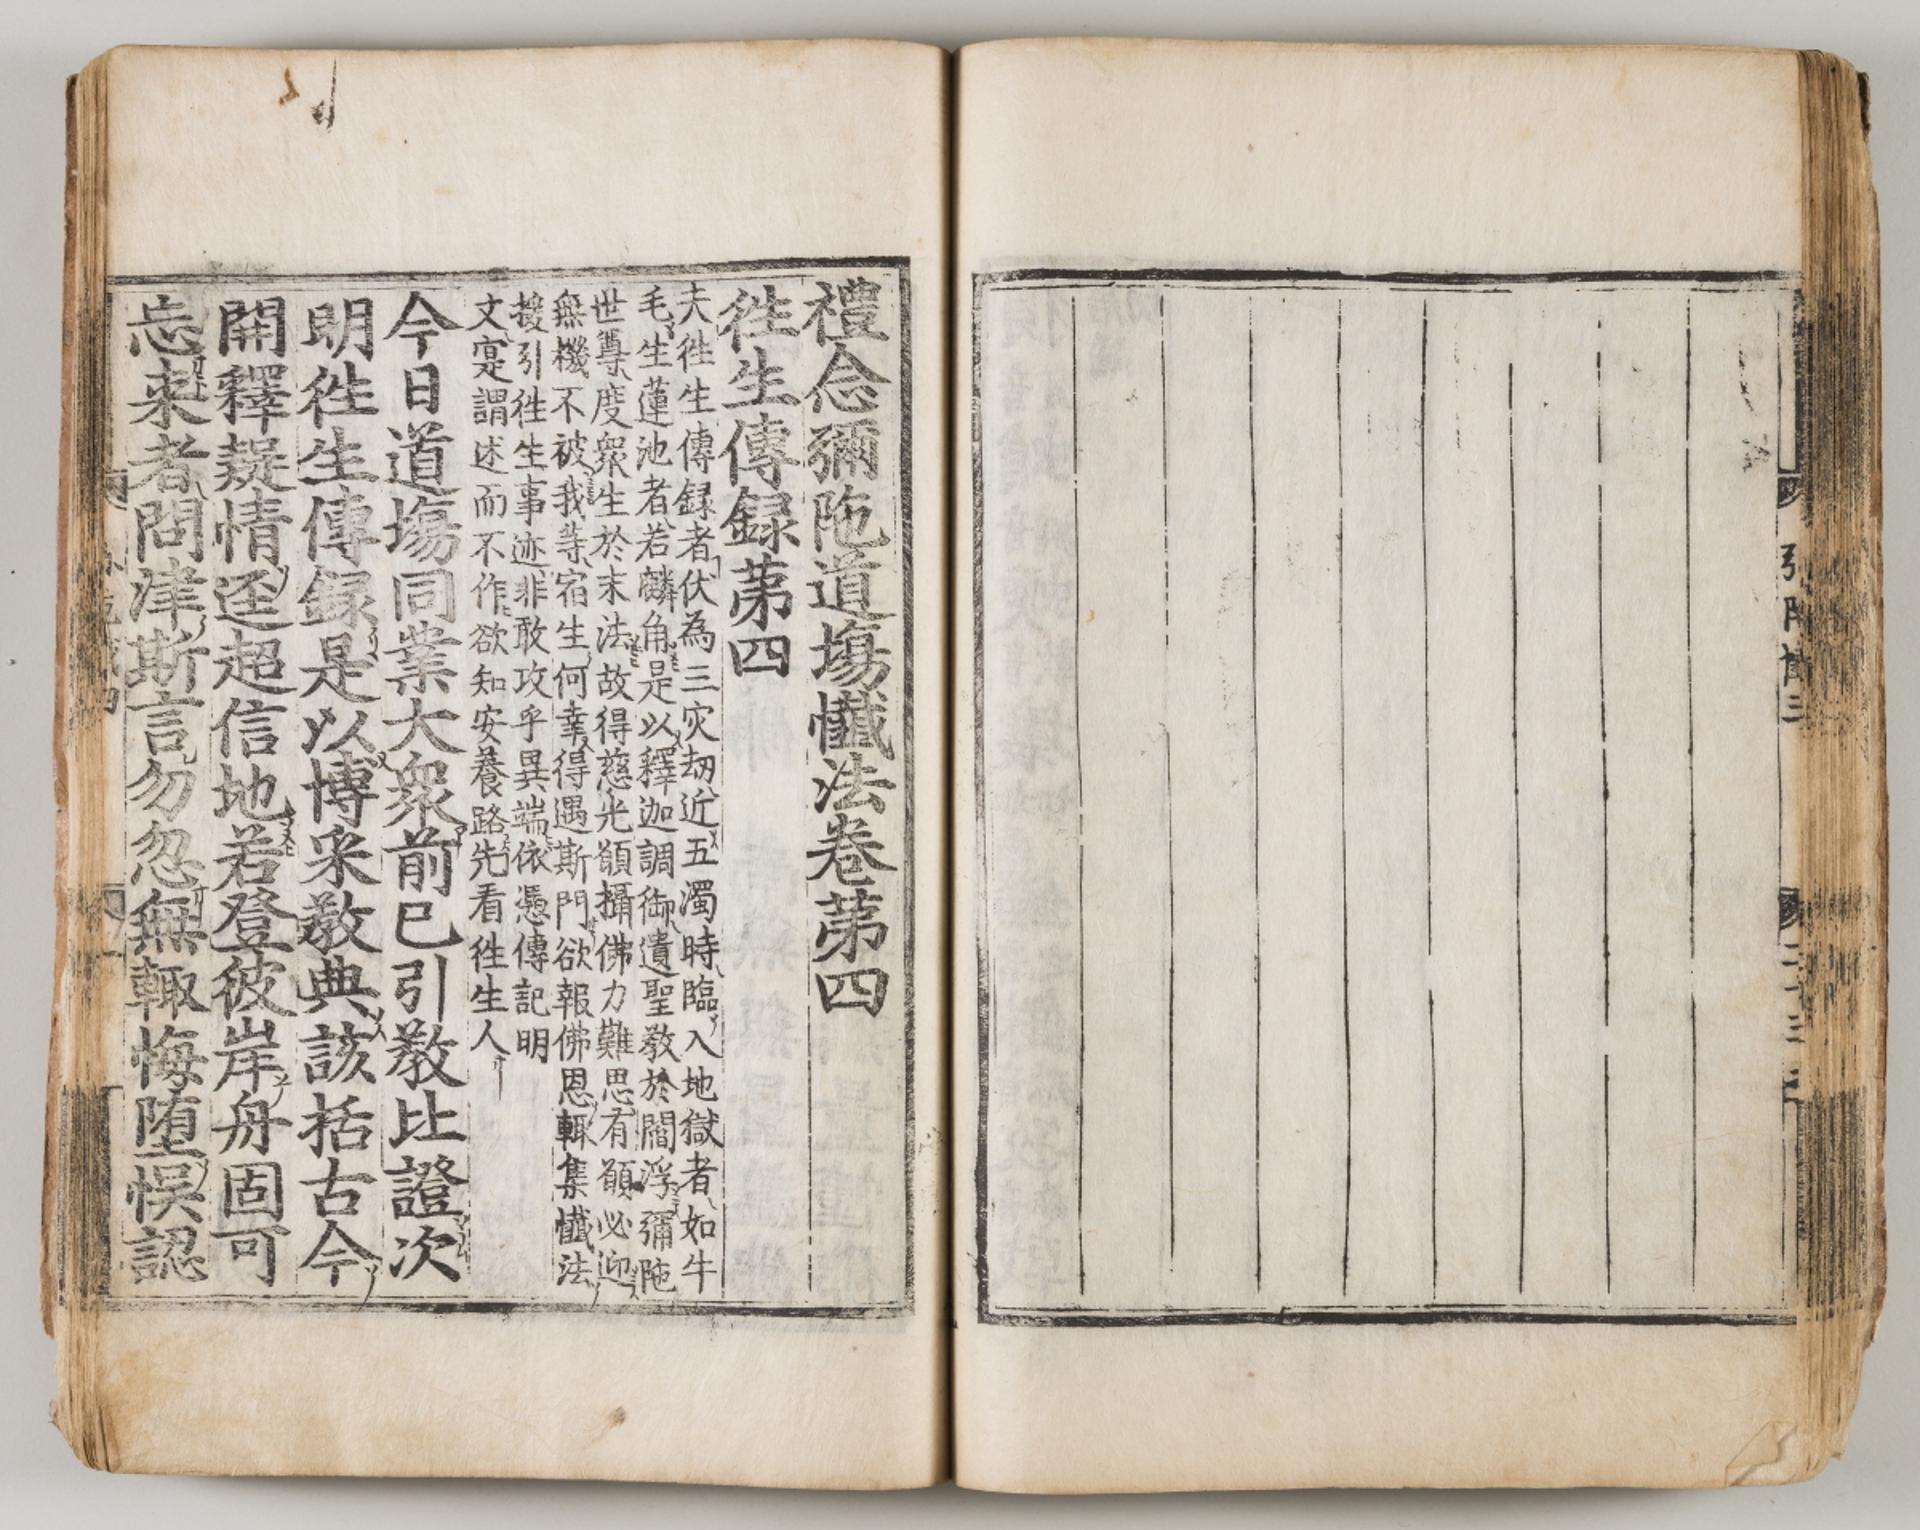 禮念彌陁道塲懺法卷苐四
徃生傳録苐四
夫徃生傳録者伏為三灾劫近五濁時臨入地獄者如牛
毛生蓮池者若麟角是以釋迦調御遺聖教於閻浮彌陁
世尊度衆生於末法故得慈光願攝佛力難思有願必迎
無機不被我等宿生何幸得遇斯門欲報佛恩輙集懺法
援引徃生事迹非敢攻乎異端依憑傳記明
文寔謂述而不作欲知安養路先看徃生人
今日道塲同業大衆前已引教比證次
明徃生傳録是以博采教典該括古今
開釋疑情逕超信地若登彼岸舟固可
忘來者問津斯言勿忽無輙悔堕悮認